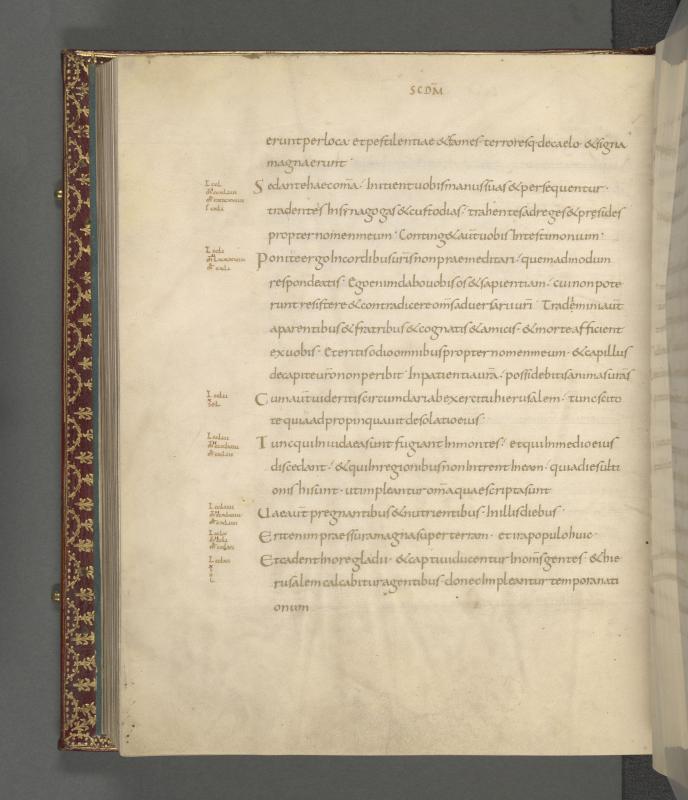 SCDM̄
erunt per loca et pestilentiae & fames terroresq· de caelo & signa
magna erunt
Sed ante haec om̄a Inicient uobis manus suas & persequentur
tradentes In synagogas & custodias trahentes ad reges & presides
propter nomen meum Conting& aut̄ uobis In testimonium
Ponite ergo In cordibus uris̄ non praemeditari quemadmodum
respondeatis Ego enim dabo uobis os & sapientiam cui non pote
runt resistere & contradicere oms̄ aduersarii uri̅ Trademini aut̄
a parentibus & fratribus & cognatis & amicis & morte afficient
ex uobis Et eritis odio omnibus propter nomen meum & capillus
de capite uro̅ non peribit In patientia ura̅ possidebitis animas uras̄
Cum aut̄ uideritis circumdari ab exercitu hierusalem tunc scito
te quia adpropinquauit desolatio eius
Tunc qui In iudaea sunt fugiant In montes et qui In medio eius
discedant & qui In regionibus non Intrent In eam quia dies ulti
onis hi sunt ut impleantur om̄a quae scripta sunt
Uae aut̄ pregnantibus & nutrientibus In illis diebus
Erit enim praessura magna super terram et ira populo huic
Et cadent In ore gladii & captiui ducentur In oms̄ gentes & hie
rusalem calcabitur a gentibus donec Impleantur tempora nati
onum